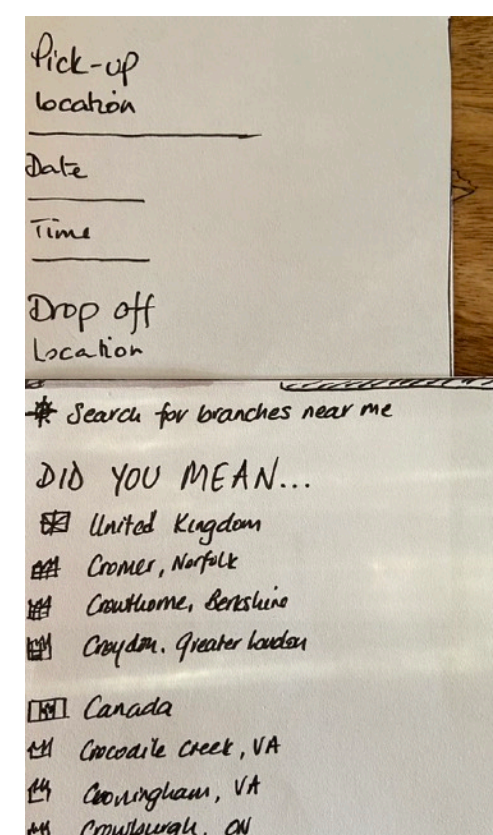 Pick-up
location
Date
Time
Drop off
Location
Search for branches near me
DID YOU MEAN...
United Kingdom
Cromer, Norfolk
Crowthorne, Berkshire
Croydon. Greater London
Canada
Crocodile Creek, VA
Crowningham, VA
Crowlburgh, ON